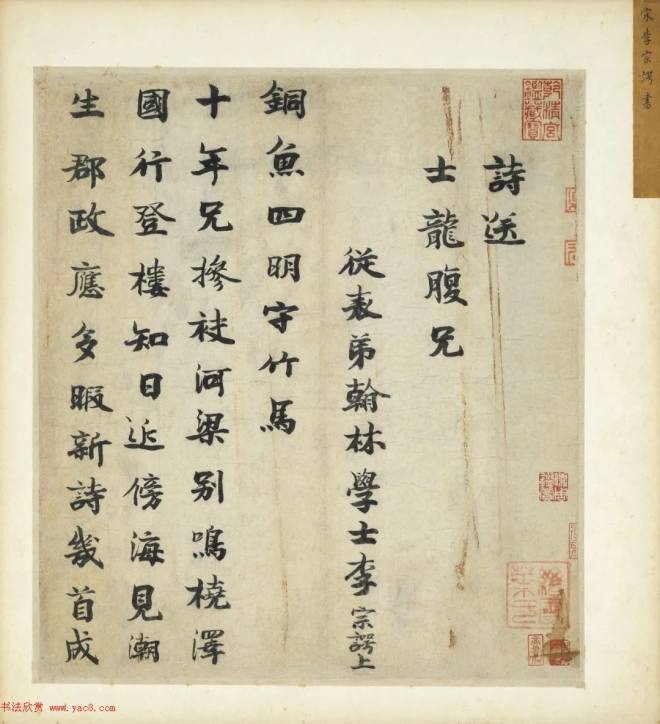 宋李宗諤書
詩送
士龍腹兄
從表弟翰林學士李宗諤上
銅魚四明守竹馬
十年兄摻袂河梁別鳴橈澤
國行登樓知日近傍海見潮
生郡政應多暇新詩幾首成
乾清宮鑒藏寶
书法欣赏 www.yac8.com